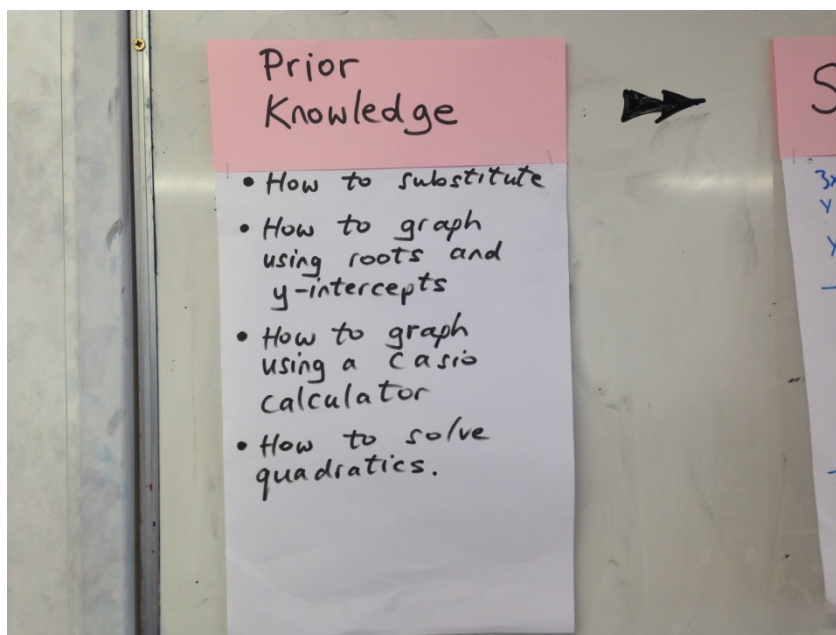 Prior
Knowledge
• How to substitute
• How to graph
using roots and
y-intercepts
• How to graph
using a Casio
calculator
• How to solve
quadratics.
S
3x
y
y